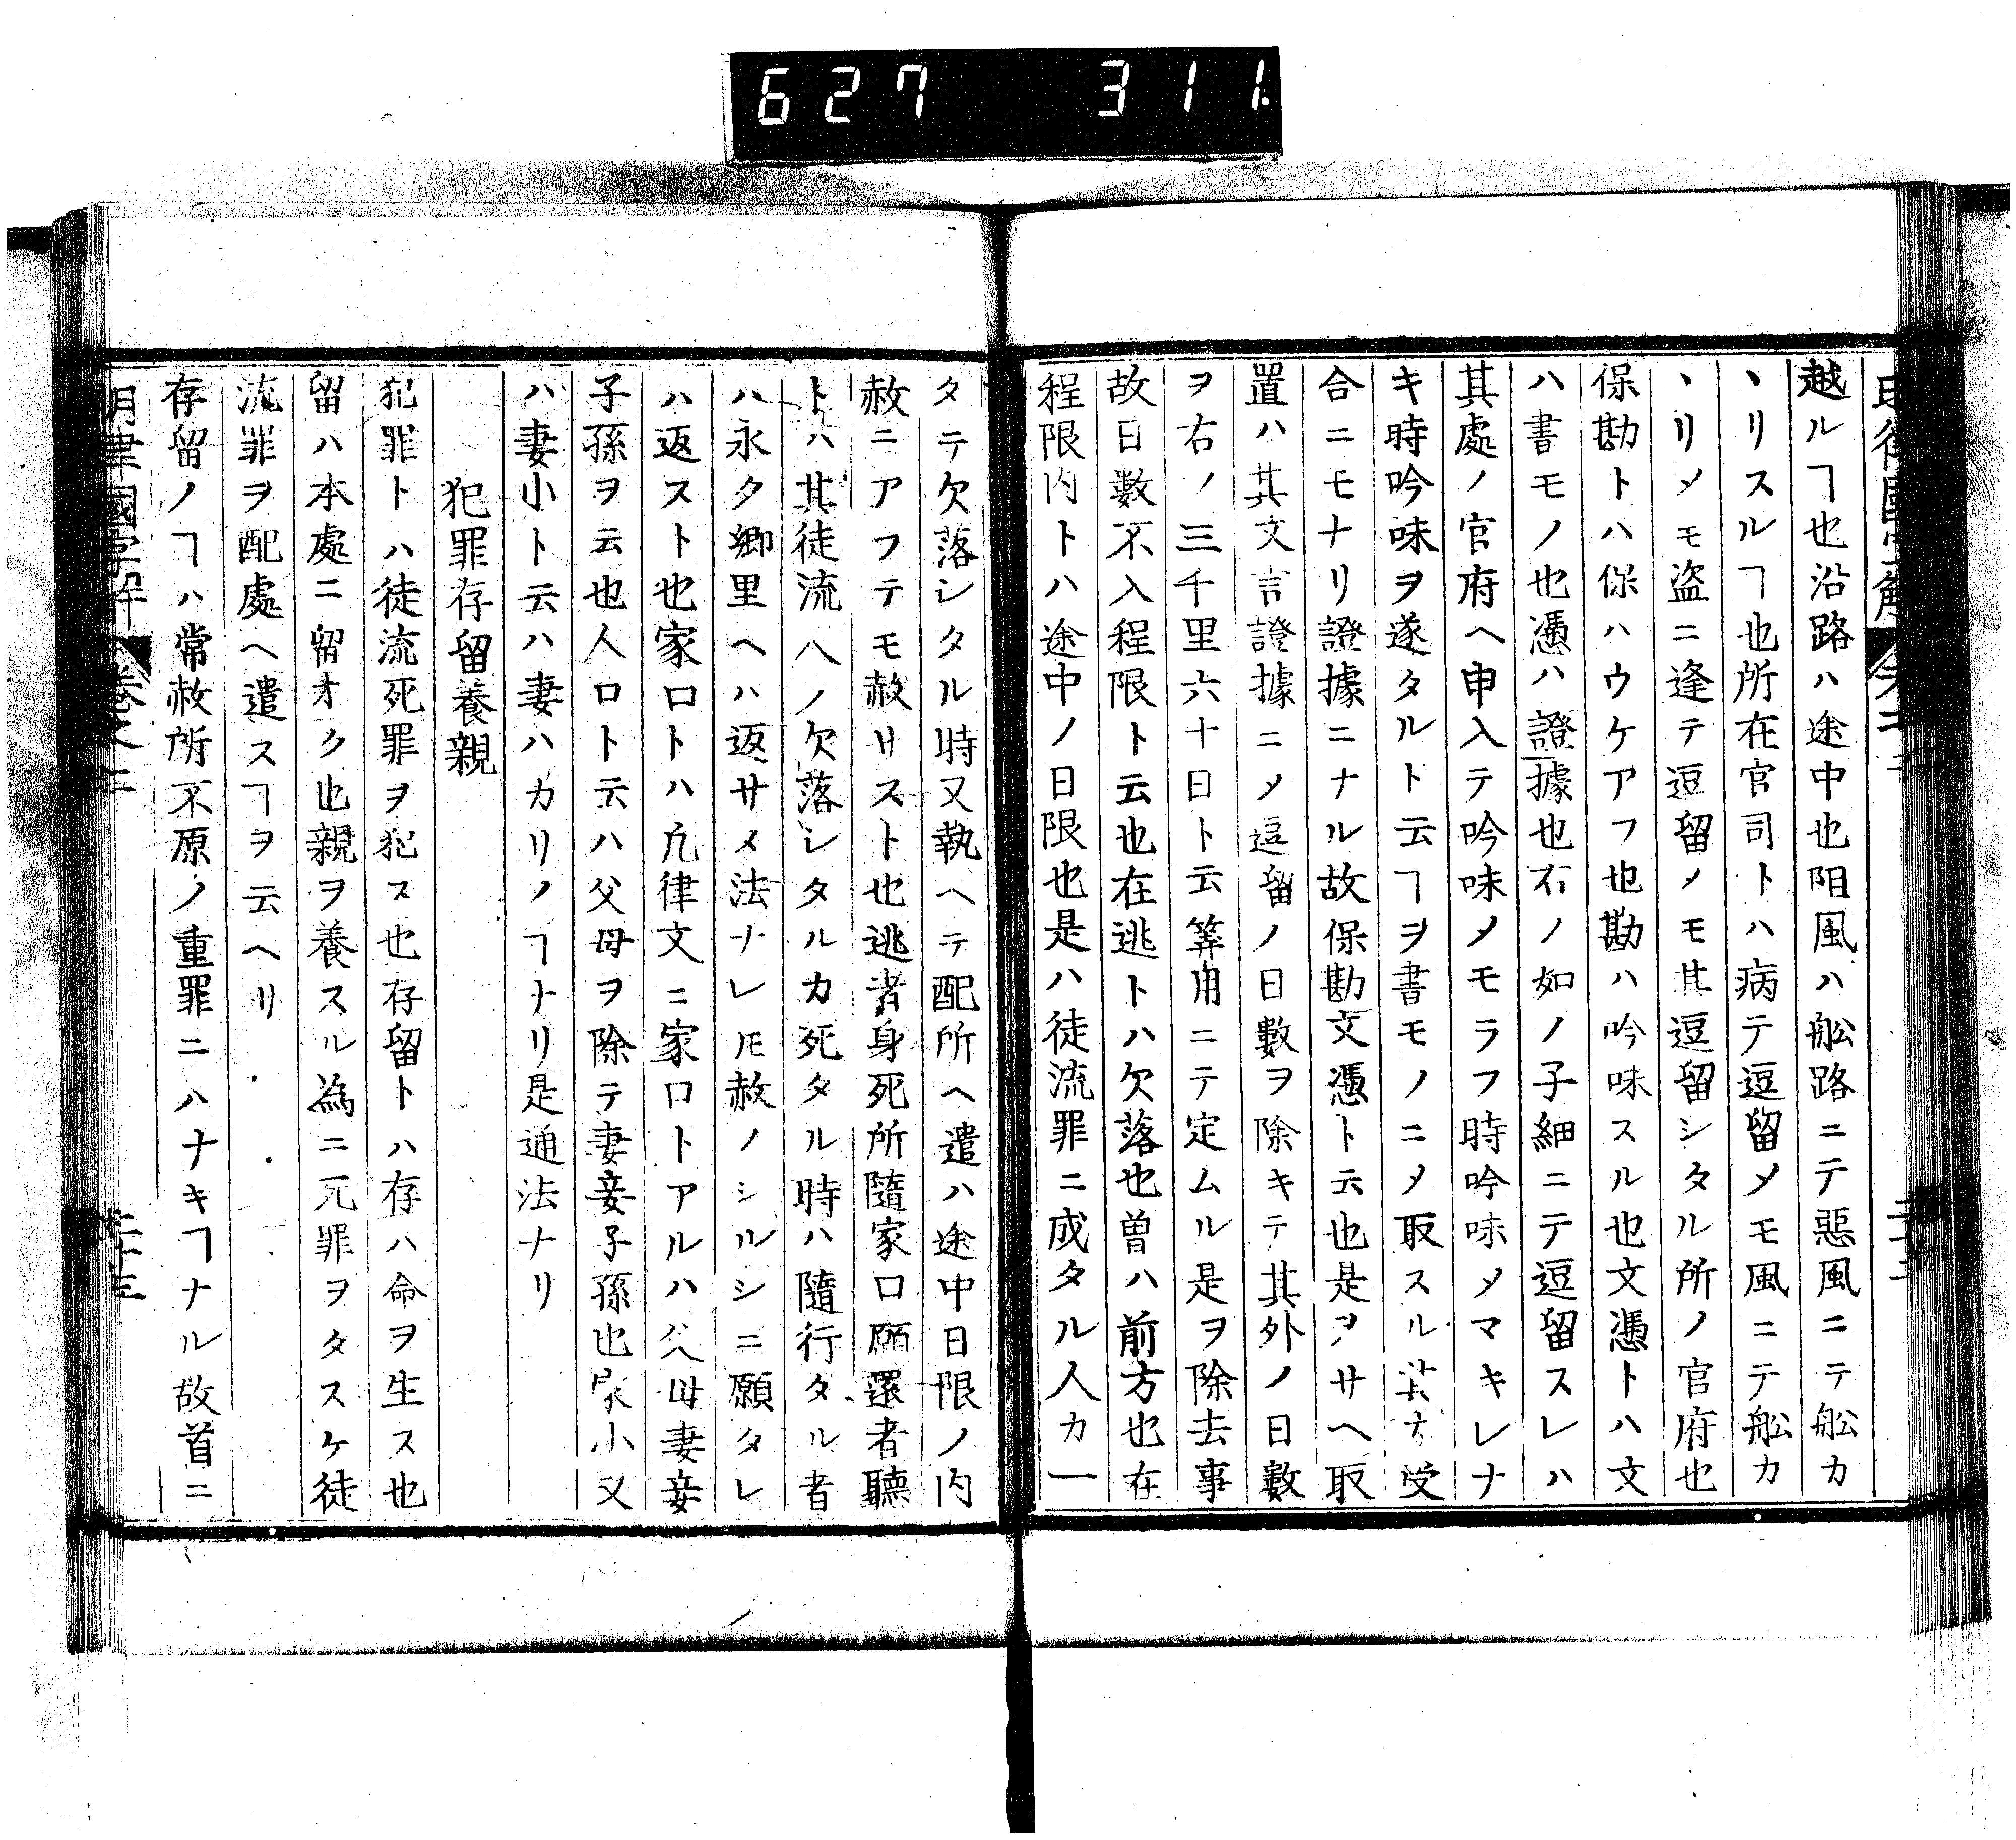 627 311
越ルヿ也沿路ハ途中也阻風ハ舩路ニテ惡風ニテ舩カ
ヽリスルヿ也所在官司トハ病テ逗留メモ風ニテ舩カ
ヽリメモ盗ニ逢テ逗留メモ其逗留シタル所ノ官府也
保勘トハ保ハウケアフ也勘ハ吟味スル也文憑トハ文
ハ書モノ也憑ハ證據也右ノ如ノ子細ニテ逗留スレハ
其處ノ官府ヘ申入テ吟味メモラフ時吟味メマキレナ
キ時吟味ヲ遂タルト云ヿヲ書モノニメ取スル
合ニモナリ證據ニナル故保勘文憑ト云也是ヲサヘ取
置ハ其文言證據ニメ逗留ノ日數ヲ除キテ其外ノ日數
ヲ右ノ三千里六十日ト云筭用ニテ定ムル是ヲ除去事
故日數不入程限ト云也在逃トハ欠落也曽ハ前方也在
程限内トハ途中ノ日限也是ハ徒流罪ニ成タル人カ一
タテ欠落シタル時又執ヘテ配所ヘ遣ハ途中日限ノ内
赦ニアフテモ赦サスト也逃者身死所隨家口願還者聽
トハ其徒流人ノ欠落シタルカ死タル時ハ隨行タル者
ハ永ク郷里ヘハ返サヌ法ナレ𪜈赦ノシルシニ願タレ
ハ返スト也家口トハ凢律文ニ家口トアルハ父母妻妾
子孫ヲ云也人口ト云ハ父母ヲ除テ妻妾子孫也家小又
ハ妻小ト云ハ妻ハカリノヿナリ是通法ナリ
犯罪存留養親
犯罪トハ徒流死罪ヲ犯ス也存留トハ存ハ命ヲ生ス也
留ハ本處ニ留オク也親ヲ養スル為ニ元罪ヲタスケ徒
流罪ヲ配處ヘ遣スヿヲ云ヘリ
存留ノヿハ常赦所不原ノ重罪ニハナキヿナル故首ニ
明律國字解 卷之二 二十三